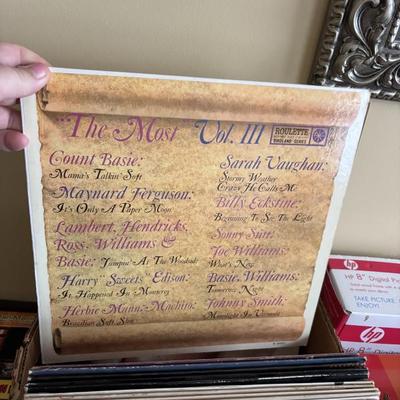 "The Most" Vol. III
ROULETTE
BIRDLAND SERIES
Count Basie:
Mama's Talkin' Soft
Maynard Ferguson:
It's Only A Paper Moon
Lambert, Hendricks,
Ross, Williams &
Basie: Jumpin' At The Woodside
Harry "Sweets" Edison:
It Happened In Monterey
Herbie Mann-Machito:
Brazilian Soft Shoe
Sarah Vaughan:
Stormy Weather
Crazy He Calls Me
Billy Eckstine:
Beginning To See The Light
Sonny Stitt:
Joe Williams:
What's New
Basie, Williams:
Tomorrow Night
Johnny Smith:
Moonlight In Vermont
HP 8" Digital P
TAKE PICTURE
ENJOY!
hp
HP 8" Digital